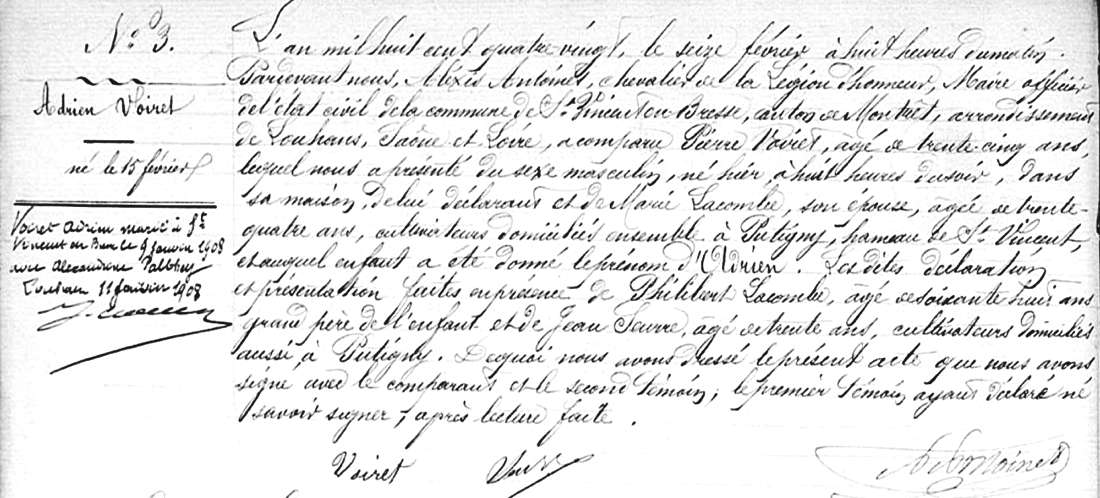 N° 3.
Adrien Voiret
né le 15 février
Voiret Adrien marié à St
Vincent en Bresse le 9 janvier 1908
avec Alexandrine
Louhans 11 janvier 1908
L'an mil huit cent quatre-vingt, le seize février à huit heures du matin.
Pardevant nous, Aléxis Antoinet, chevalier de la Légion d'honneur, Maire officier
de l'état civil de la commune de St Vincent en Bresse, canton de Montrêt, arrondissement
de Louhans, Saône et Loire, a comparu Pierre Voiret, âgé de trente-cinq ans,
lequel nous a présenté du sexe masculin, né hier, à huit heures du soir, dans
sa maison, de lui déclarant et de Marie Lacombe, son épouse, âgée de trente-
quatre ans, cultivateurs domiciliés ensemble à Putigny, hameau de St Vincent,
et auquel enfant a été donné le prénom d'Adrien. Les dites déclaration
et présentation faites en présence de Philibert Lacombe, âgé de soixante huit ans
grand père de l'enfant et de Jean Seurre, âgé de trente ans, cultivateurs domiciliés
aussi à Putigny. De quoi nous avons dressé le présent acte que nous avons
signé avec le comparant et le second témoin; le premier témoin ayant déclaré ne
savoir signer, après lecture faite.
Voiret
A Antoinet